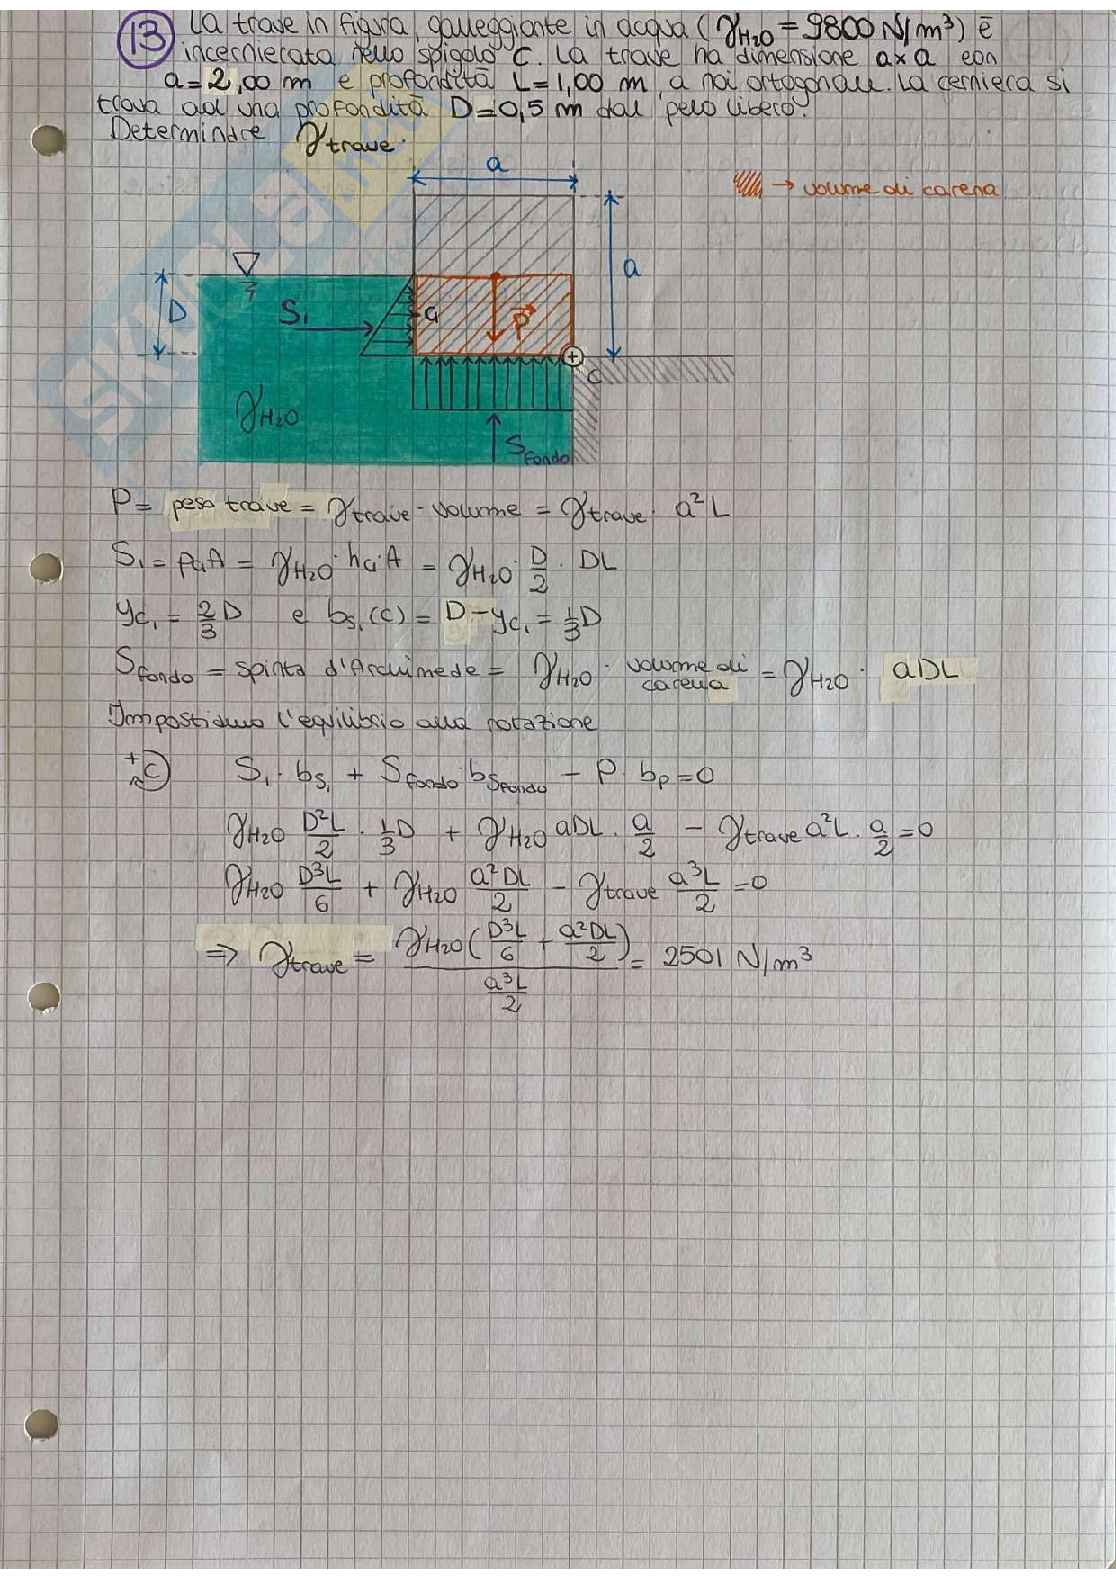 13 La trave in figura, galleggiante in acqua (γH2O = 9800 N/m³) è
incernierata nello spigolo C. La trave ha dimensione a×a con
a = 2,00 m e profondità L = 1,00 m, a noi ortogonale. La cerniera si
trova ad una profondità D = 0,5 m dal pelo libero.
Determinare γtrave.
a
→ volume di carena
a
D
S1
G
P
C
γH2O
Sfondo
P = peso trave = γtrave · volume = γtrave · a²L
S1 = pG A = γH2O · hG · A = γH2O · D/2 · DL
yC1 = 2/3 D e bS1(C) = D - yC1 = 1/3 D
Sfondo = spinta d'Archimede = γH2O · volume di carena = γH2O · aDL
Impostiamo l'equilibrio alla rotazione
+ C S1 · bS1 + Sfondo · bSfondo - P · bP = 0
γH2O D²L/2 · 1/3 D + γH2O aDL · a/2 - γtrave a²L · a/2 = 0
γH2O D³L/6 + γH2O a²DL/2 - γtrave a³L/2 = 0
⇒ γtrave = γH2O (D³L/6 + a²DL/2) / (a³L/2) = 2501 N/m³